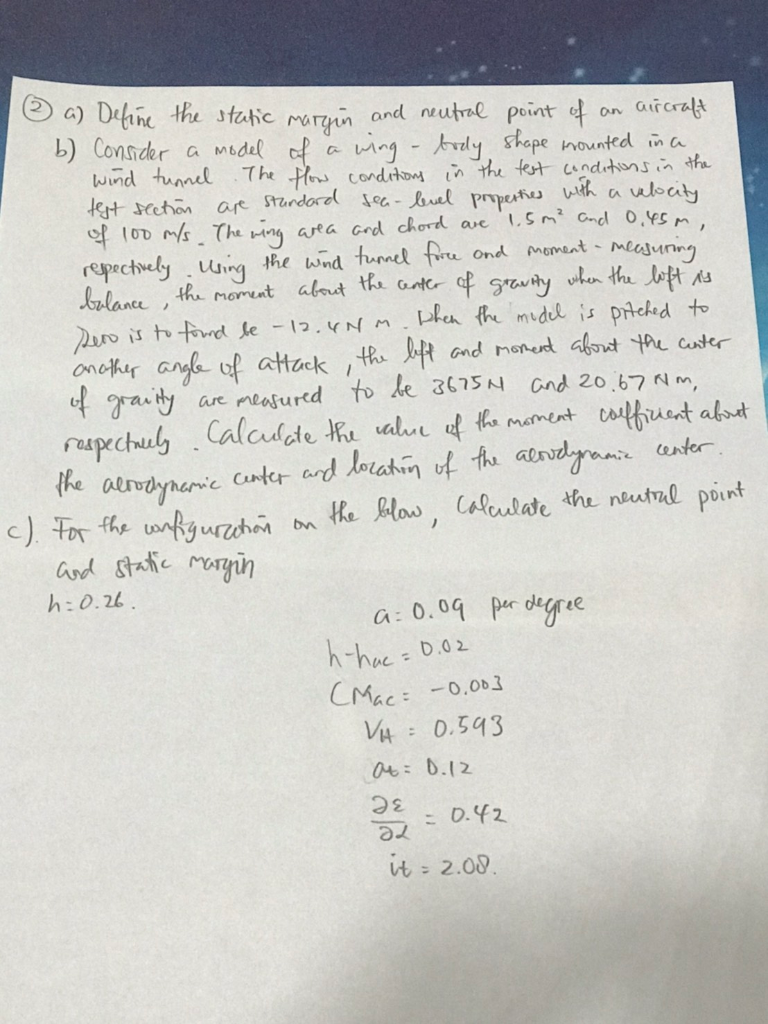 ② a) Define the static margin and neutral point of an aircraft
b) Consider a model of a wing - body shape mounted in a
wind tunnel. The flow conditions in the test conditions in the
test section are standard sea-level properties with a velocity
of 100 m/s. The wing area and chord are 1.5 m² and 0.45 m,
respectively. Using the wind tunnel force and moment-measuring
balance, the moment about the center of gravity when the lift is
zero is to found be -12.4 N m. When the model is pitched to
another angle of attack, the lift and moment about the center
of gravity are measured to be 3675 N and 20.67 N m,
respectively. Calculate the value of the moment coefficient about
the aerodynamic center and location of the aerodynamic center.
c). For the configuration on the blow, Calculate the neutral point
and static margin
h = 0.26.
a = 0.09 per degree
h-hac = 0.02
CMac = -0.003
VH = 0.593
at = 0.12
∂ε/∂α = 0.42
it = 2.08.